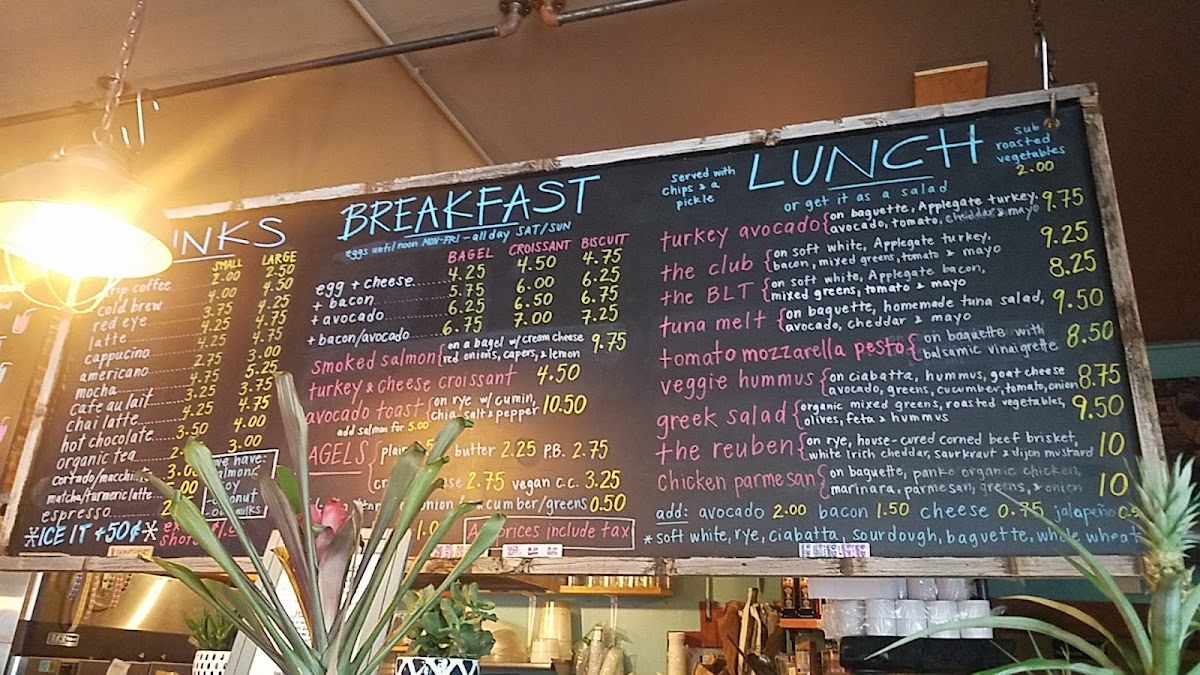 INKS
SMALL LARGE
drip coffee 2.00 2.50
cold brew 4.00 4.50
red eye 3.75 4.25
latte 4.25 4.75
cappucino 4.25 4.75
americano 2.75 3.00
mocha 4.75 5.25
cafe au lait 3.25 3.75
chai latte 4.25 4.75
hot chocolate 3.50 4.00
organic tea 3.00
cortado/macchiato
matcha/turmeric latte
espresso
we have:
almond
soy
coconut
milks
*ICE IT +50¢*
BREAKFAST
eggs until noon MON-FRI - all day SAT/SUN
BAGEL CROISSANT BISCUIT
egg + cheese 4.25 4.50 4.75
+ bacon 5.75 6.00 6.25
+ avocado 6.25 6.50 6.75
+ bacon/avocado 6.75 7.00 7.25
smoked salmon { on a bagel w/ cream cheese red onions, capers, & lemon 9.75
turkey & cheese croissant 4.50
avocado toast { on rye w/ cumin, chia, salt & pepper 10.50
add salmon for 5.00
AGELS { plain butter 2.25 P.B. 2.75
2.75 vegan c.c. 3.25
/greens 0.50
prices include tax
LUNCH
served with chips & a pickle
sub roasted vegetables 2.00
or get it as a salad
turkey avocado { on baguette, Applegate turkey, avocado, tomato, cheddar & mayo 9.75
the club { on soft white, Applegate turkey, bacon, mixed greens, tomato & mayo 9.25
the BLT { on soft white, Applegate bacon, mixed greens, tomato & mayo 8.25
tuna melt { on baguette, homemade tuna salad, avocado, cheddar & mayo 9.50
tomato mozzarella pesto { on baguette with balsamic vinaigrette 8.50
veggie hummus { on ciabatta, hummus, goat cheese avocado, greens, cucumber, tomato, onion 8.75
greek salad { organic mixed greens, roasted vegetables, olives, feta & hummus 9.50
the reuben { on rye, house-cured corned beef brisket, white irish cheddar, saurkraut & dijon mustard 10
chicken parmesan { on baguette, panko organic chicken, marinara, parmesan, greens, & onion 10
add: avocado 2.00 bacon 1.50 cheese 0.75 jalapeño
* soft white, rye, ciabatta, sourdough, baguette, whole wheat